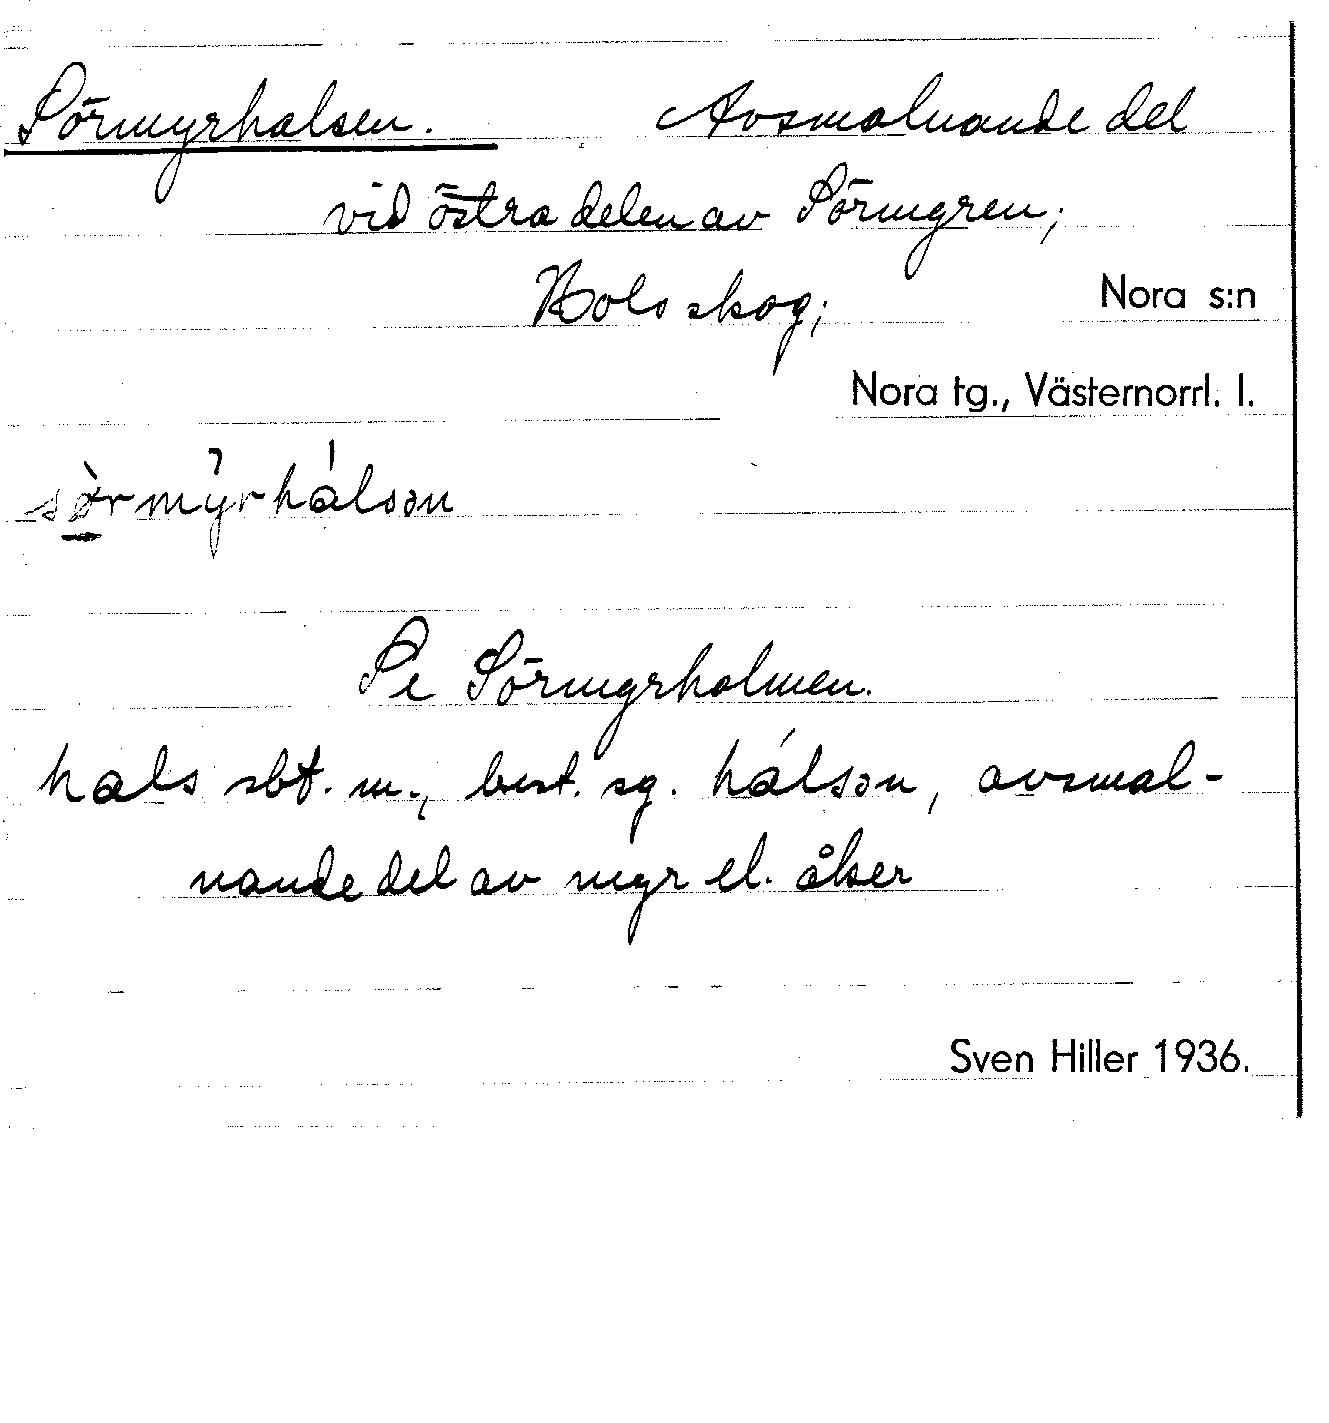 Sörmyrhalsen. Avsmalnande del
vid östra delen av Sörmyren;
Hols skog; Nora s:n
Nora tg., Västernorrl. l.
sə̀rmy̌rhálsən
Se Sörmyrholmen.
hals sbt. m., best. sg. hálsən, avsmal-
nande del av myr el. åker
Sven Hiller 1936.